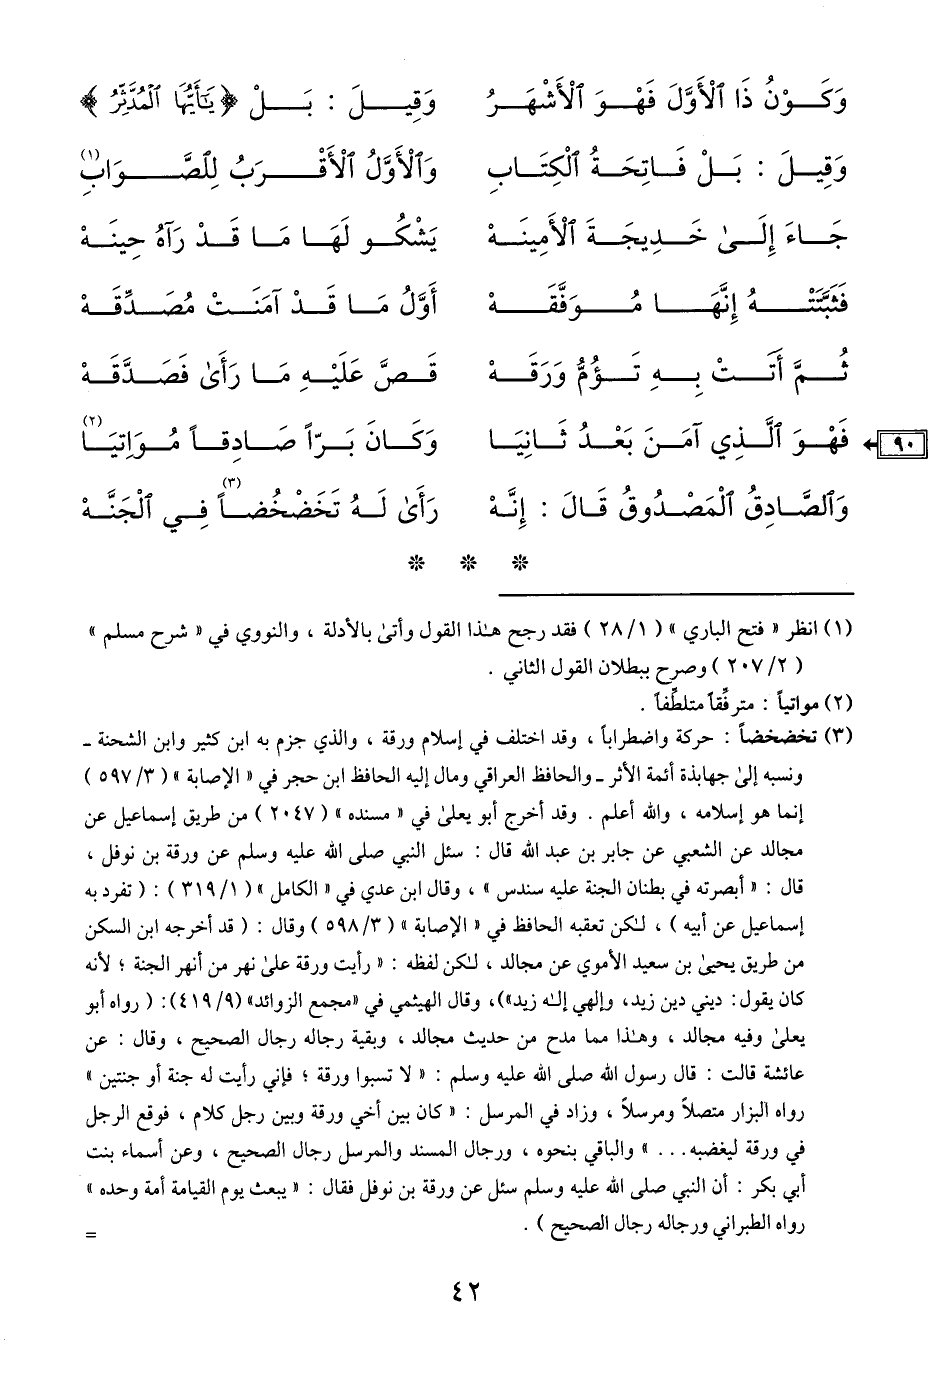 وَكَوْنُ ذَا ٱلْأَوَّلَ فَهْوَ ٱلْأَشْهَرُ وَقِيلَ : بَلْ ﴿يَٰٓأَيُّهَا ٱلْمُدَّثِّرُ﴾
وَقِيلَ : بَلْ فَاتِحَةُ ٱلْكِتَابِ وَٱلْأَوَّلُ ٱلْأَقْرَبُ لِلصَّوَابِ(١)
جَاءَ إِلَىٰ خَدِيجَةَ ٱلْأَمِينَهْ يَشْكُو لَهَا مَا قَدْ رَآهُ حِينَهْ
فَثَبَّتَتْهُ إِنَّهَا مُوَفَّقَهْ أَوَّلُ مَا قَدْ آمَنَتْ مُصَدِّقَهْ
ثُمَّ أَتَتْ بِهِ تَؤُمُّ وَرَقَهْ قَصَّ عَلَيْهِ مَا رَأَىٰ فَصَدَّقَهْ
٩٠ فَهْوَ ٱلَّذِي آمَنَ بَعْدُ ثَانِيَا وَكَانَ بَرّاً صَادِقاً مُوَاتِيَا(٢)
وَٱلصَّادِقُ ٱلْمَصْدُوقُ قَالَ : إِنَّهْ رَأَىٰ لَهُ تَخَضْخُضاً(٣) فِي ٱلْجَنَّهْ
(١) انظر « فتح الباري » ( ٢٨/١ ) فقد رجح هـٰذا القول وأتىٰ بالأدلة ، والنووي في « شرح مسلم »
( ٢٠٧/٢ ) وصرح ببطلان القول الثاني .
(٢) مواتياً : مترفِّقاً متلطِّفاً .
(٣) تخضخضاً : حركة واضطراباً ، وقد اختلف في إسلام ورقة ، والذي جزم به ابن كثير وابن الشحنة ـ
ونسبه إلىٰ جهابذة أئمة الأثر ـ والحافظ العراقي ومال إليه الحافظ ابن حجر في « الإصابة » ( ٥٩٧/٣ )
إنما هو إسلامه ، والله أعلم . وقد أخرج أبو يعلىٰ في « مسنده » ( ٢٠٤٧ ) من طريق إسماعيل عن
مجالد عن الشعبي عن جابر بن عبد الله قال : سئل النبي صلى الله عليه وسلم عن ورقة بن نوفل ،
قال : « أبصرته في بطنان الجنة عليه سندس » ، وقال ابن عدي في « الكامل » ( ٣١٩/١ ) : ( تفرد به
إسماعيل عن أبيه ) ، لـٰكن تعقبه الحافظ في « الإصابة » ( ٥٩٨/٣ ) وقال : ( قد أخرجه ابن السكن
من طريق يحيىٰ بن سعيد الأموي عن مجالد ، لـٰكن لفظه : « رأيت ورقة علىٰ نهر من أنهر الجنة ؛ لأنه
كان يقول : ديني دين زيد ، وإلهي إلـٰه زيد » ) ، وقال الهيثمي في « مجمع الزوائد » ( ٤١٩/٩ ) : ( رواه أبو
يعلىٰ وفيه مجالد ، وهـٰذا مما مدح من حديث مجالد ، وبقية رجاله رجال الصحيح ، وقال : عن
عائشة قالت : قال رسول الله صلى الله عليه وسلم : « لا تسبوا ورقة ؛ فإني رأيت له جنة أو جنتين »
رواه البزار متصلاً ومرسلاً ، وزاد في المرسل : « كان بين أخي ورقة وبين رجل كلام ، فوقع الرجل
في ورقة ليغضبه . . . » والباقي بنحوه ، ورجال المسند والمرسل رجال الصحيح ، وعن أسماء بنت
أبي بكر : أن النبي صلى الله عليه وسلم سئل عن ورقة بن نوفل فقال : « يبعث يوم القيامة أمة وحده »
رواه الطبراني ورجاله رجال الصحيح ) . =
٤٢